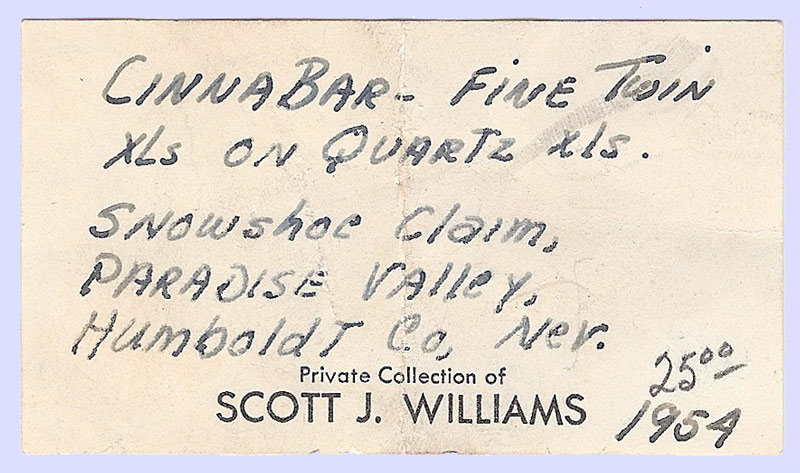 CINNABAR - FINE TWIN
XLs ON QUARTZ xls.
Snowshoe Claim,
PARADISE Valley,
Humboldt Co, Nev.
Private Collection of
SCOTT J. WILLIAMS
25⁰⁰
1954